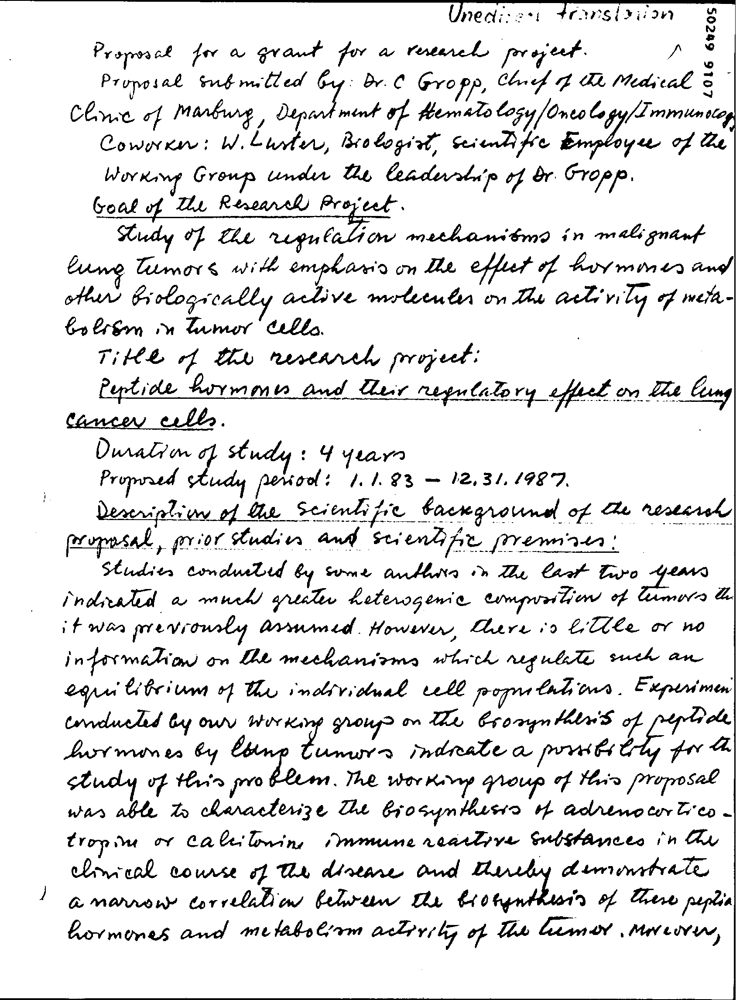 Unedited translation
50249 9107
Proposal for a grant for a research project.
Proposal submitted by: Dr. C Gropp, Chief of the Medical
Clinic of Marburg, Department of Hematology/Oncology/Immunology
Coworker: W. Luster, Biologist, scientific Employee of the
Working Group under the leadership of Dr. Gropp.
Goal of the Research Project.
Study of the regulation mechanisms in malignant
lung tumors with emphasis on the effect of hormones and
other biologically active molecules on the activity of meta-
bolism in tumor cells.
Title of the research project:
Peptide hormones and their regulatory effect on the lung
cancer cells.
Duration of study: 4 years
Proposed study period: 1.1.83 – 12.31.1987.
Description of the scientific background of the research
proposal, prior studies and scientific premises:
Studies conducted by some authors in the last two years
indicated a much greater heterogenic composition of tumors th
it was previously assumed. However, there is little or no
information on the mechanisms which regulate such an
equilibrium of the individual cell populations. Experimen
conducted by our working group on the biosynthesis of peptide
hormones by lung tumors indicate a possibility for th
study of this problem. The working group of this proposal
was able to characterize the biosynthesis of adrenocortico-
tropine or calcitonine immune reactive substances in the
clinical course of the disease and thereby demonstrate
a narrow correlation between the biosynthesis of these peptid
hormones and metabolism activity of the tumor. Moreover,